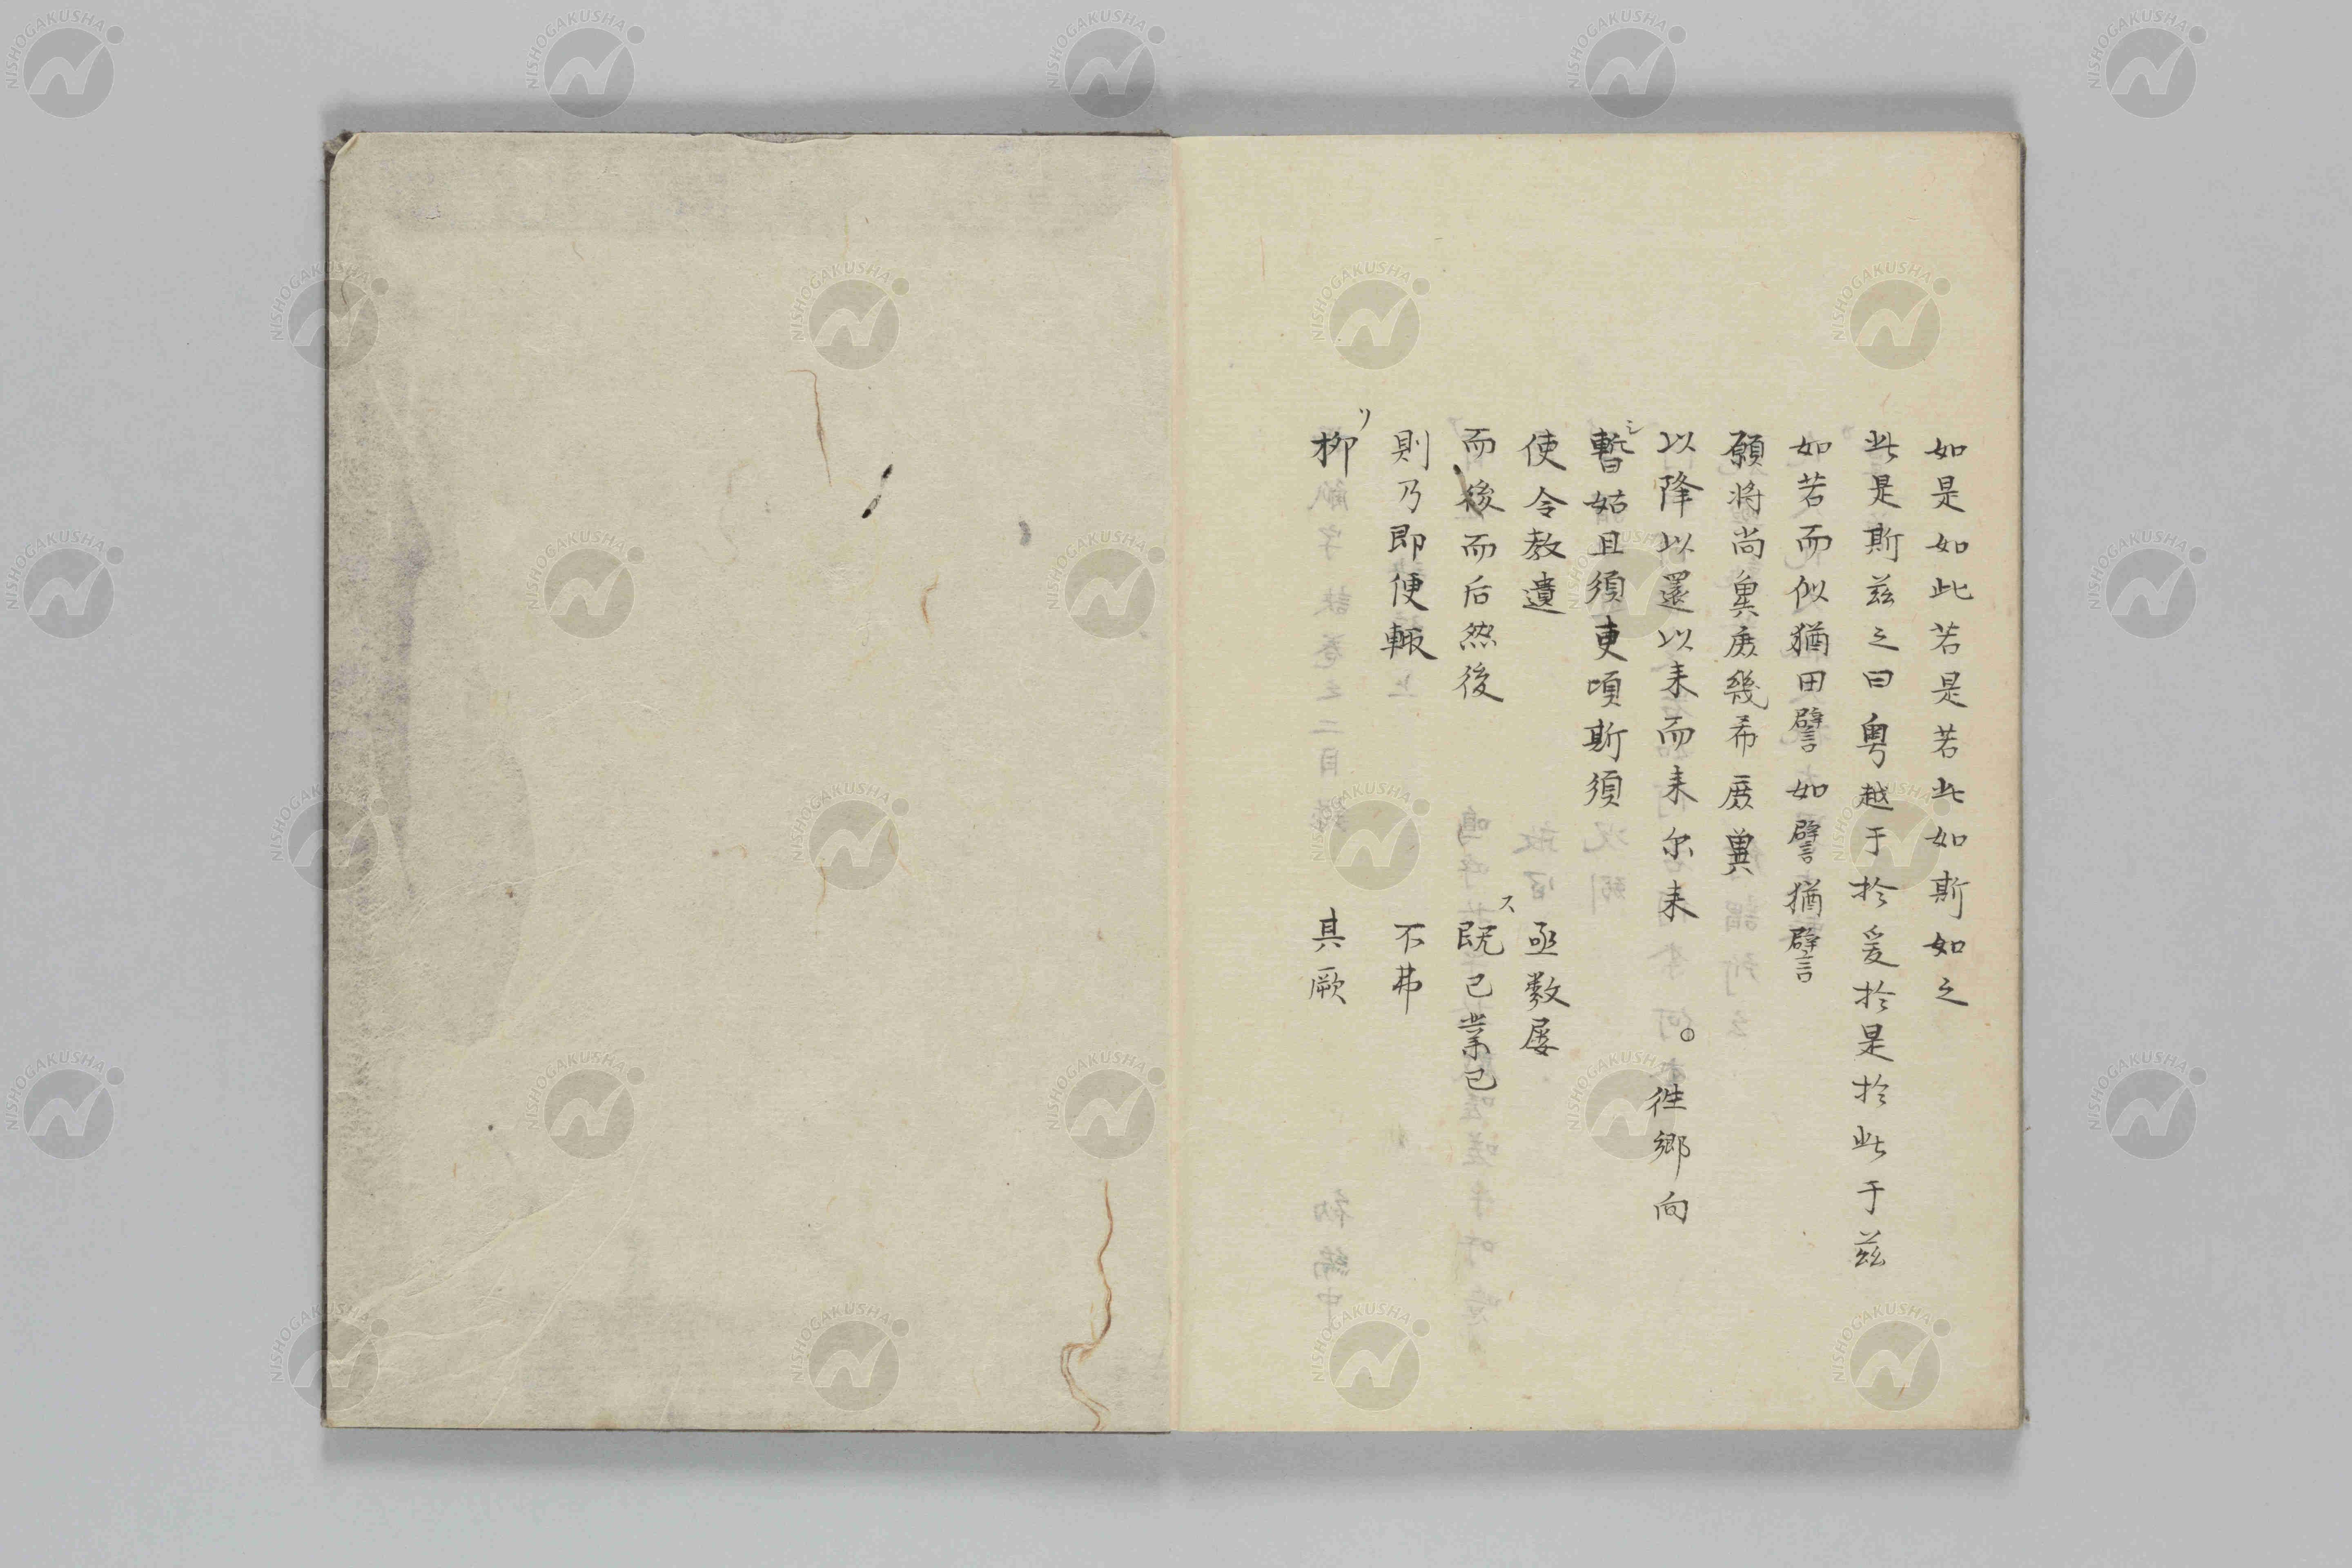 如是如此若是若此如斯如之
此是斯茲之曰粤越于於爰於是於此于茲
如若而似猶由譬如譬猶譬
願將尚冀庶幾希庶冀
以降以還以来而来尓来。往郷向
暫シ姑且須更頃斯須
使令教遣 亟數屡
而後而后然後 既ス已業已
則乃即便輙 不弗
抑ソ 其厥
NISHOGAKUSHA